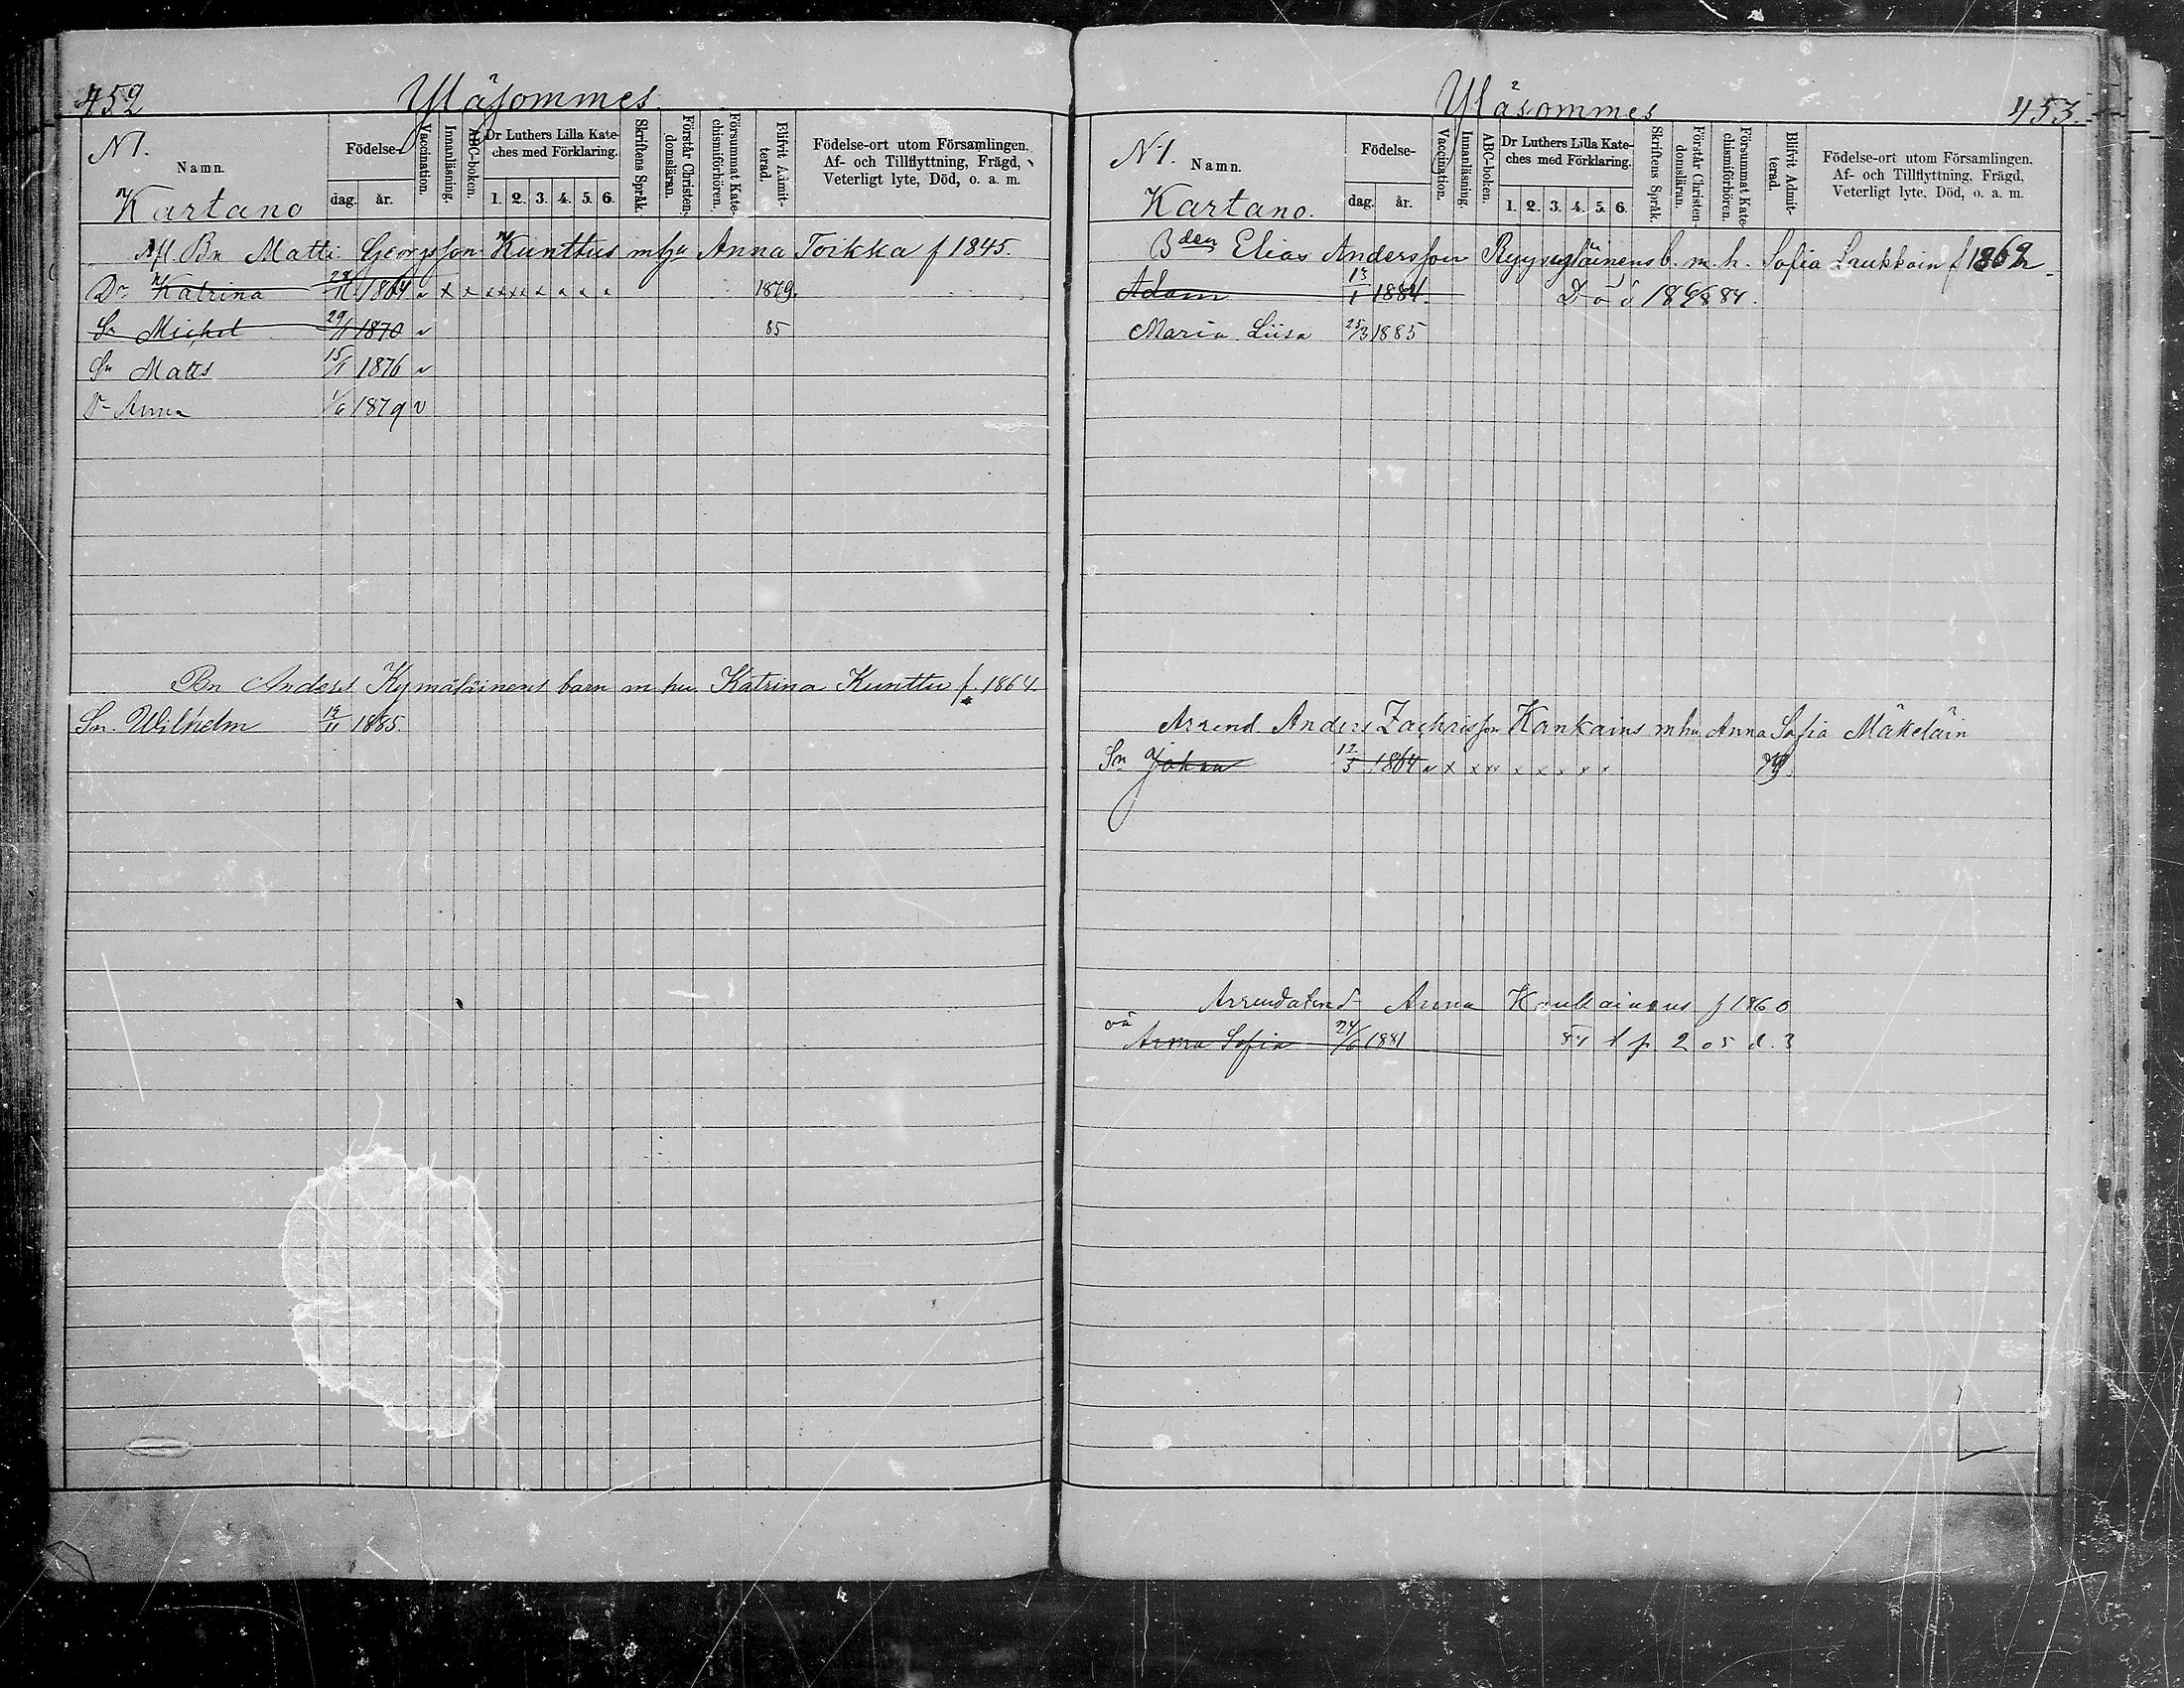 452 Yläsommes
N1.
Namn.
Kartano
Födelse-
dag. år.
Vaccination.
Innanläsning.
ABC-boken.
Dr Luthers Lilla Kate-
ches med Förklaring.
1. 2. 3. 4. 5. 6.
Skriftens Språk.
Förstår Christen-
domsläran.
Försummat Kate-
chismiförhören.
Blifvit Admit-
terad.
Födelse-ort utom Församlingen.
Af- och Tillflyttning, Frägd,
Veterligt lyte, Död, o. a. m.
Afl. Bn Matti Georgsson Kunttus m hu Anna Toikka f 1845.
Dr Katrina 1864 v x x x x x x x x x x 1879.
Sn Michel 29/1 1870 v 85
Sn Matts 15/1 1876 v
Dr Anna 1/6 1879 v
Bn Anders Kymäläinens barn m hu Katrina Kunttu f. 1864.
Sn. Wilhelm 19/11 1885.
Yläsommes 453.
N1.
Namn.
Kartano.
Födelse-
dag. år.
Vaccination.
Innanläsning.
ABC-boken.
Dr Luthers Lilla Kate-
ches med Förklaring.
1. 2. 3. 4. 5. 6.
Skriftens Språk.
Förstår Christen-
domsläran.
Försummat Kate-
chismiförhören.
Blifvit Admit-
terad.
Födelse-ort utom Församlingen.
Af- och Tillflyttning, Frägd,
Veterligt lyte, Död, o. a. m.
Bden Elias Andersson b. m. h. Sofia Laukkain
Adam 1884. Död
Maria Liisa 25/3 1885
Arrend Anders Zachrisson Kankains m hu Anna Sofia Mäkeläin
Sn Johan 12/5 1864 v x x x x x x x x x
Anna f 1860
oä Anna Sofia 24/6 1881 p 205 d. 3